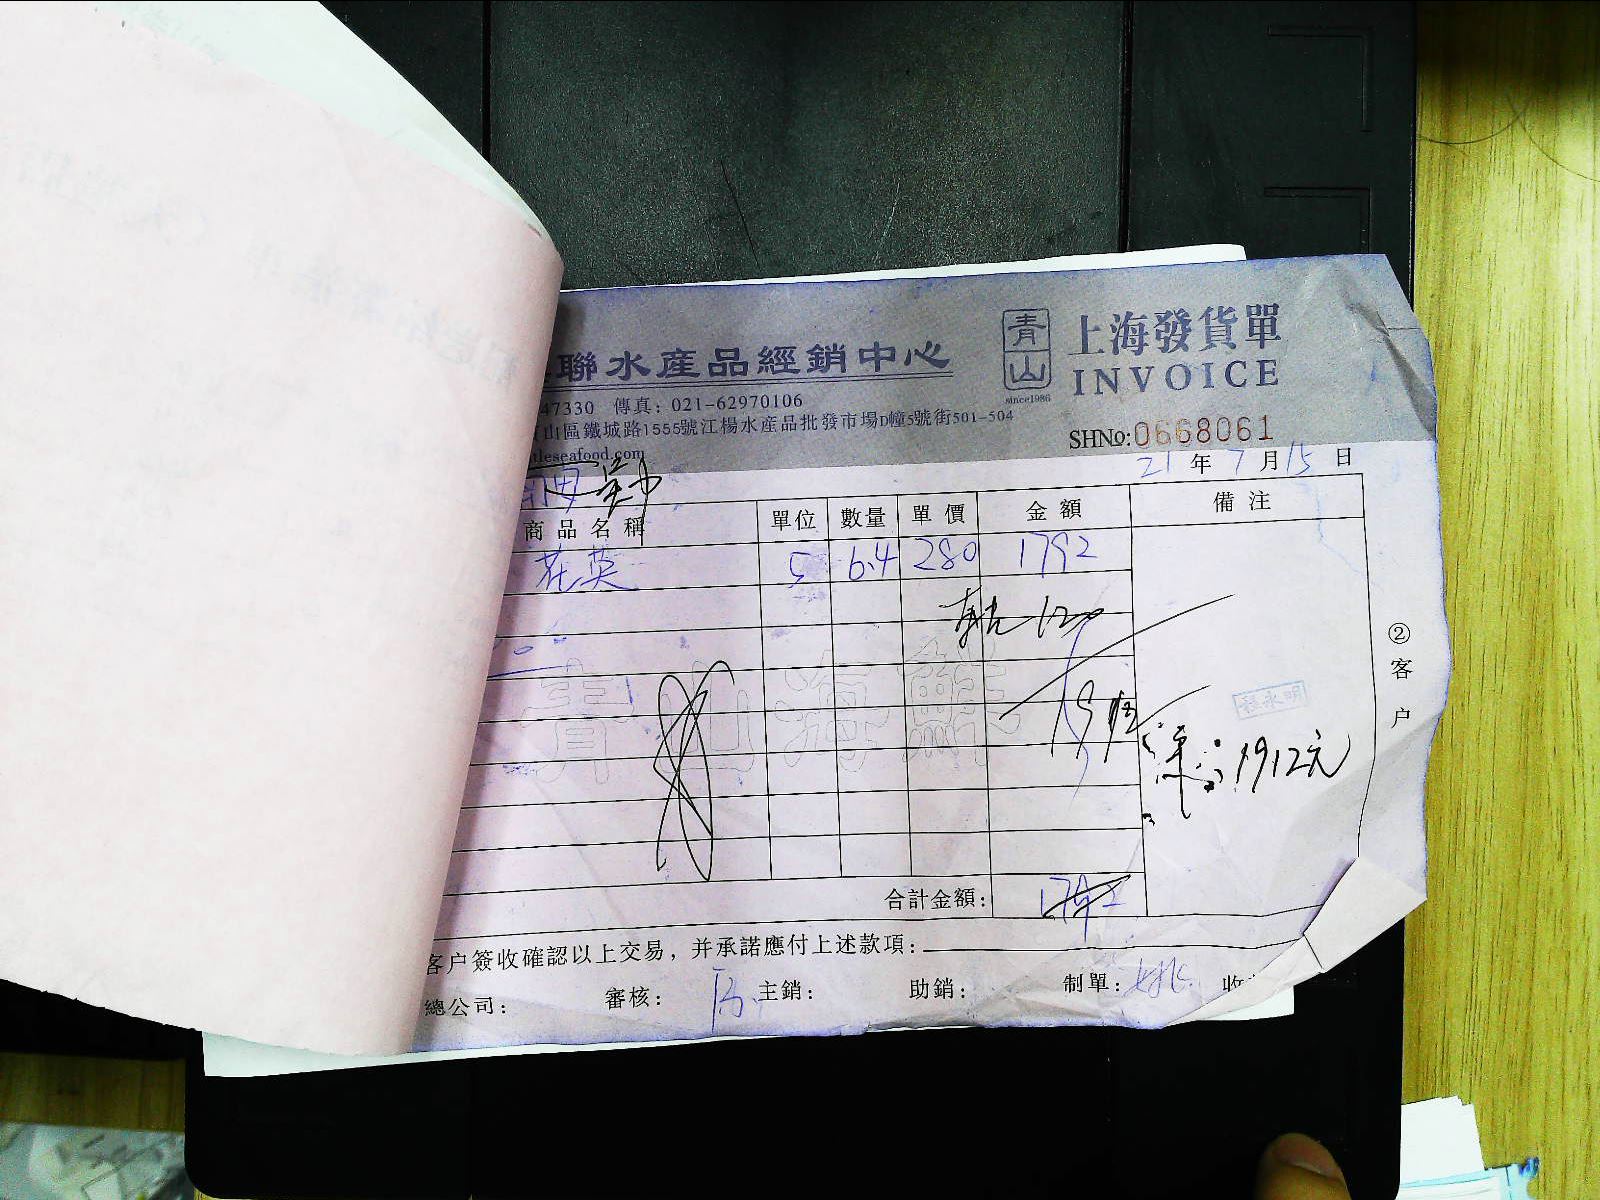 聯水産品經銷中心
青山
since1986
上海發貨單
INVOICE
47330 傳真：021-62970106
山區鐵城路1555號江楊水産品批發市場D幢5號街501-504
tleseafood.com
SHNo:0668061
21年7月15日
商品名稱 單位 數量 單價 金額 備注
6.4 280 1792
120
青山海鮮
1912
1912元
②客户
合計金額： 1792
客户簽收確認以上交易，并承諾應付上述款項：
總公司： 審核： 主銷： 助銷： 制單： 收